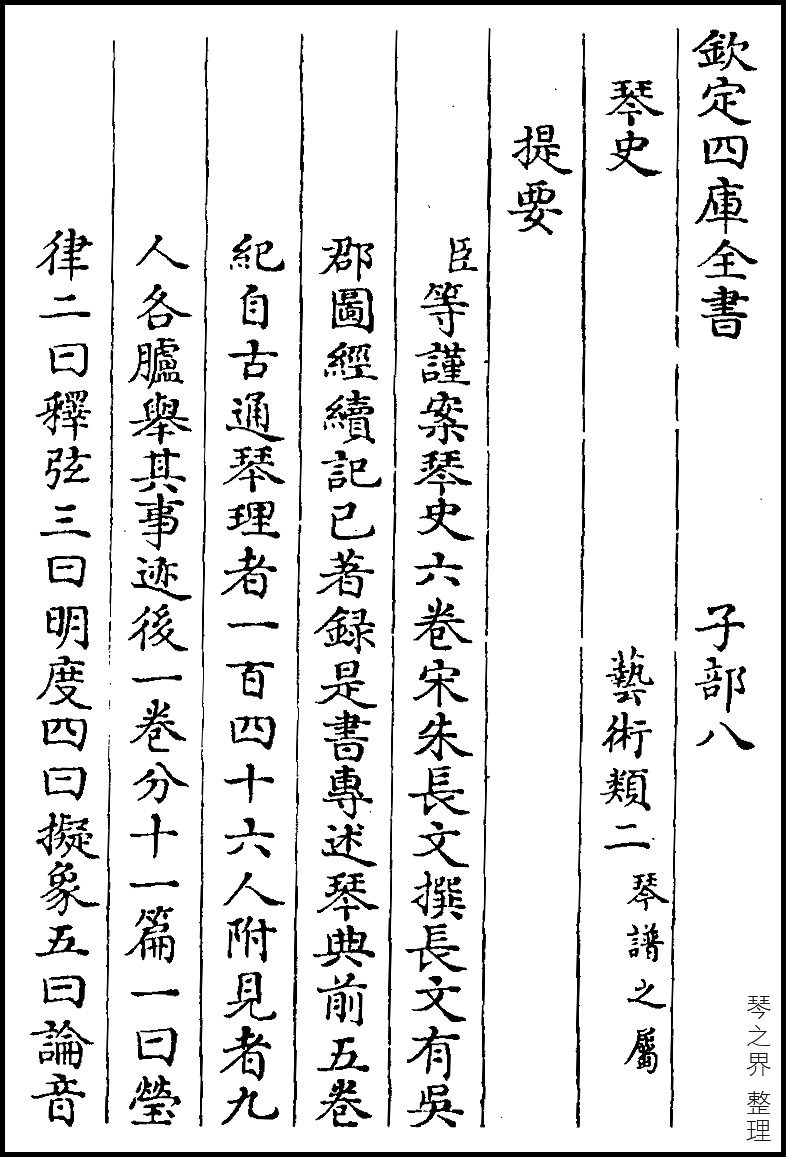 欽定四庫全書　子部八
琴史　藝術類二琴譜之屬
提要
臣等謹案琴史六卷宋朱長文撰長文有吳
郡圖經續記已著録是書專述琴典前五卷
紀自古通琴理者一百四十六人附見者九
人各臚舉其事迹後一卷分十一篇一曰瑩
律二曰釋弦三曰明度四曰擬象五曰論音
琴之界 整理